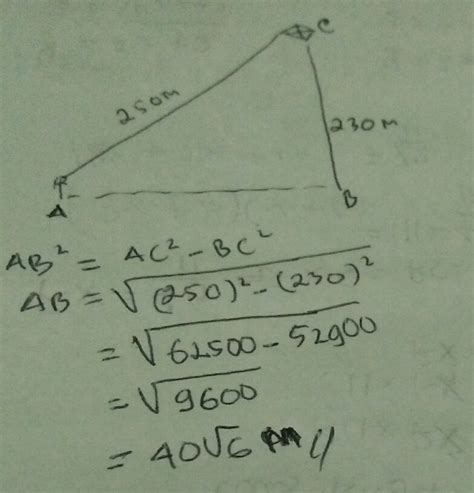 C
250m
230m
A
B
AB² = AC² - BC²
AB = √(250)² - (230)²
= √62500 - 52900
= √9600
= 40√6 m //